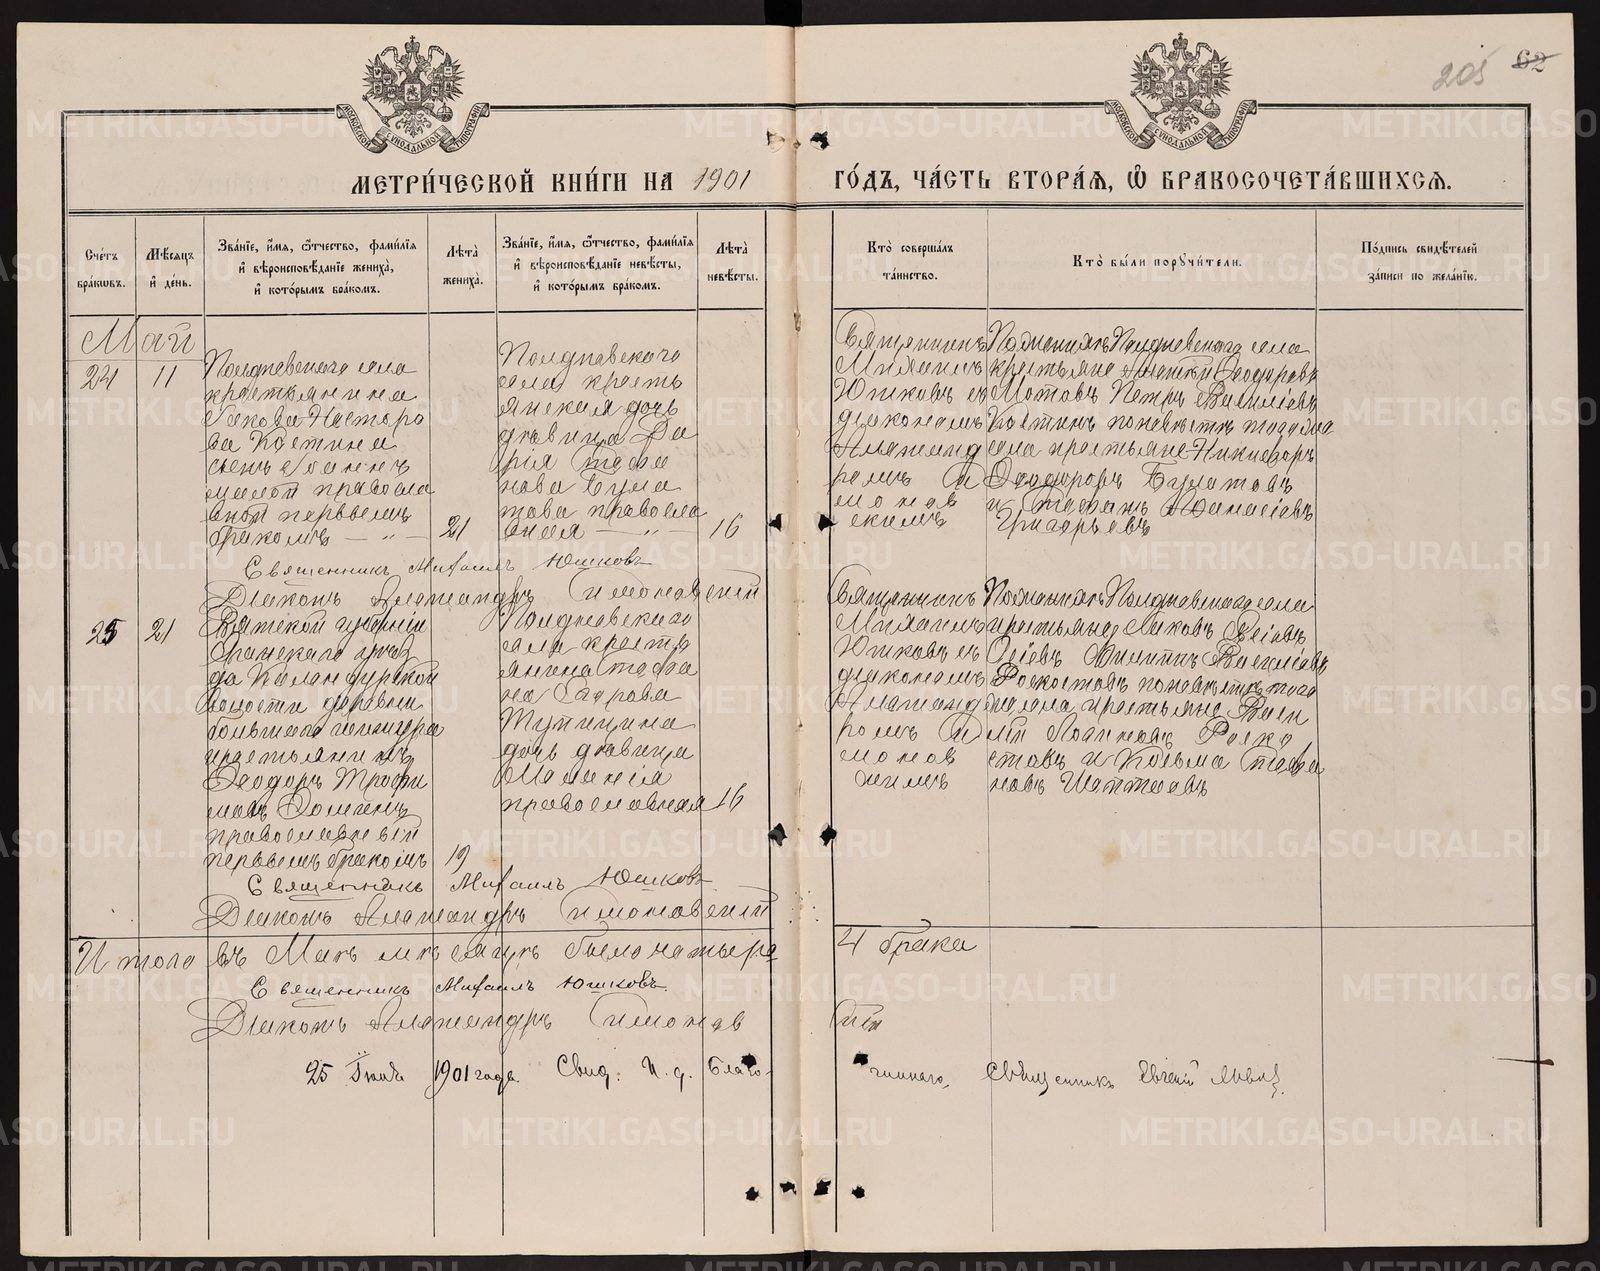 205 62
МОСКОВСКОЙ СУНОДАЛЬНОЙ ТИПОГРАФІИ
МОСКОВСКОЙ СУНОДАЛЬНОЙ ТИПОГРАФІИ
МЕТРИ́ЧЕСКОЙ КНИ́ГИ НА 1901 ГО́ДЪ, ЧА́СТЬ ВТОРА́Я, Ѡ БРАКОСОЧЕТА́ВШИХСЯ.
Сче́тъ
бра́кѡвъ.
Мѣ́сяцъ
и҆ де́нь.
Зва́нїе, и҆́мя, ѻ҆́тчество, фами́лїя
и҆ вѣроисповѣ́данїе жениха̀,
и҆ кото́рымъ бра́комъ.
Лѣ́та
жениха̀.
Зва́нїе, и҆́мя, ѻ҆́тчество, фами́лїя
и҆ вѣроисповѣ́данїе невѣ́сты,
и҆ кото́рымъ бра́комъ.
Лѣ́та
невѣ́сты.
Кто̀ соверша́лъ
та́инство.
Кто̀ бы́ли поручи́тели.
По́дпись свидѣ́телей
за́писи по жела́нїю.
Май
24 11
Полдневскаго села
крестьянина
Іакова Нестеро
ва Костина
сынъ Іоаннъ
православ
ной первымъ
бракомъ — „ —
21
Полдневского
села кресть
янская дочь
девица Да
рія Стефа
нова Була
това правосла
вная — „ —
16
Священникъ
Михаилъ
Юшковъ съ
діакономъ
Александ
ромъ Си
монов
скимъ
По женихѣ Полдневскаго села
крестьяне Феодоровъ
Мотовъ Петръ Василіевъ
Костинъ по невѣстѣ того же
села крестьяне Никифоръ
Феодоровъ Булатовъ
и Стефанъ
Григорьевъ
Священникъ Михаилъ Юшковъ
Діаконъ Александръ Симоновскій
25 21
Вятской губерніи
Уржскаго уѣз
да
волости деревни
большаго
крестьянинъ
Феодоръ Трофи
мовъ
православный
первымъ бракомъ
19
Полдневскаго
села кресть
янина Стефа
на
дочь девица
Меланія
православная
16
Священникъ
Михаилъ
Юшковъ съ
діакономъ
Александ
ромъ Си
монов
скимъ
По женихѣ Полдневскаго села
крестьяне
Василіевъ
по невѣстѣ того
же села крестьяне Васи
лій Логиновъ Роско
стовъ и Козьма Стефа
новъ
Священникъ Михаилъ Юшковъ
Діаконъ Александръ Симоновскій
Итого въ Маѣ мѣсяцѣ было четыре 4 брака
Священникъ Михаилъ Юшковъ
Діаконъ Александръ Симонов скій
25 Іюля 1901 года. Свид: И. д. Благо- чиннаго, Священникъ Евгеній
METRIKI.GASO-URAL.RU